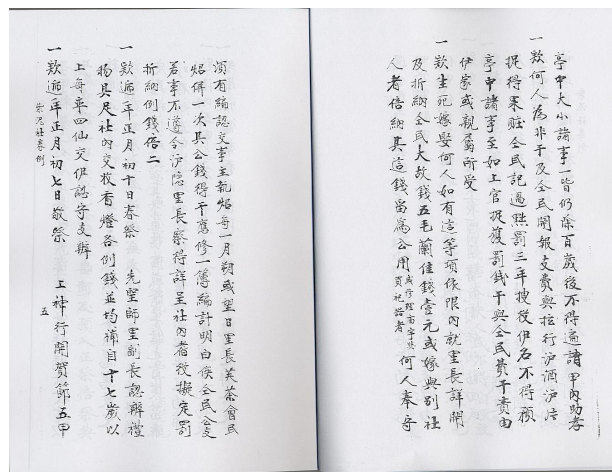 亭中大小諸事一皆仍除百歲後不得遍請甲內助孝
一款何人為非干及仝民開報支費與拉行沪酒沪
捉得果贓仝民記過照罰三年搜役伊名不得預
亭中諸事至如上官捉獲罰錢干與仝民費干責由
伊家或親屬所受
一款生死嫁娶何人如有這等項依限內就里長詳開
及折納仝民大故錢五毛蘭佳錢壹元或嫁與別社
人者倍納其這錢留為公用 何人奉守
須有編認交事主執炤每一月朔或望日里長芙茶會民
炤併一次其公錢得干應修一簿編計明白俟仝民公支
若事不遵合沪隱里長察得詳呈社內耆役擬定罰
折納例錢倍二
一款遞年正月初十日春祭 先聖師里副長認辦禮
物具足社內交枚香燈各例錢並均補自十七歲以
上每率四仙交伊認守支辦
一款遞年正月初七日敬祭 上神行開賀節五甲
柴泥社券例
五